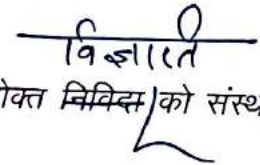 विज्ञप्ति
ोक्त निविदा को संस्थ